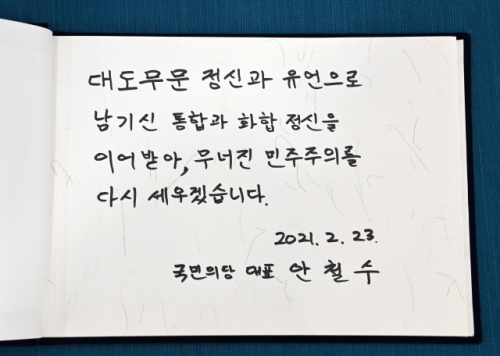 대도무문 정신과 유언으로
남기신 통합과 화합 정신을
이어받아, 무너진 민주주의를
다시 세우겠습니다.
2021. 2. 23.
국민의당 대표 안 철 수